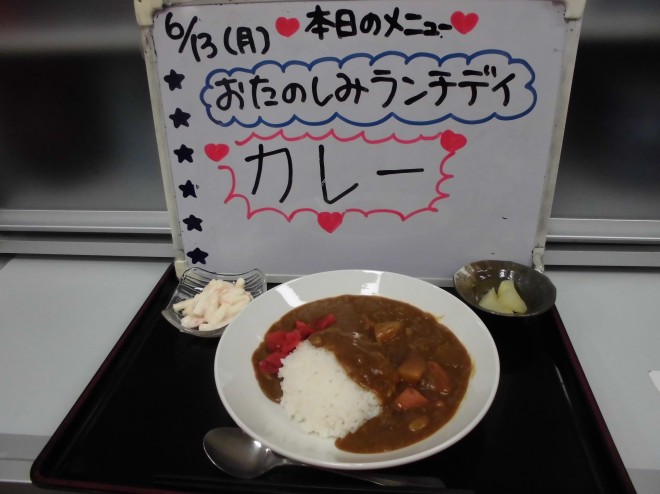 6/13(月) 本日のメニュー
おたのしみランチデイ
カレー